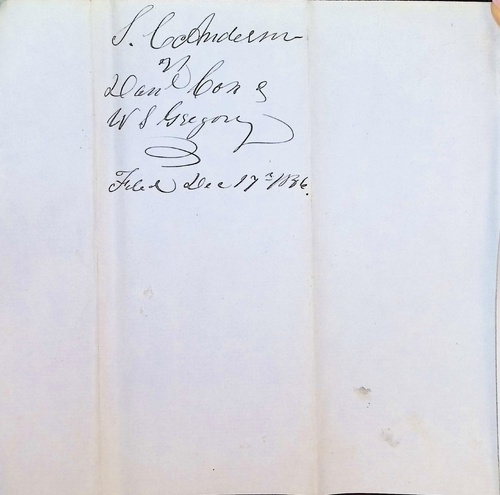 S. C. Anderson
vs
Danl Cox &
W S Gregory
Filed Dec 17th 1836.